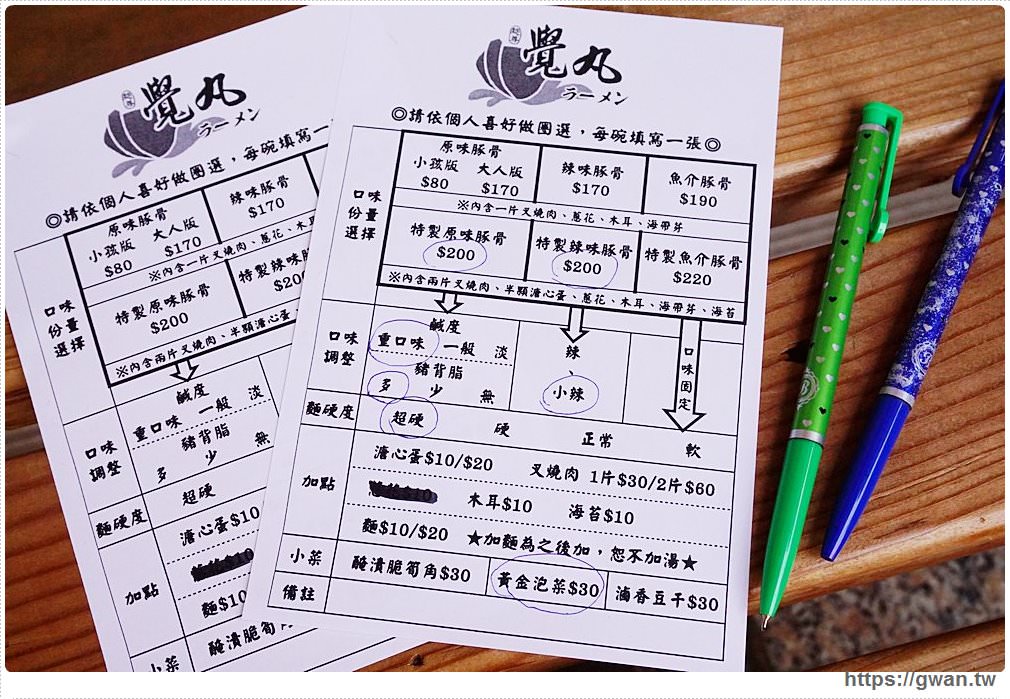 覺丸
ラーメン
◎請依個人喜好做圈選，每碗填寫一張◎
口味份量選擇
原味豚骨
小孩版 大人版
$80 $170
辣味豚骨
$170
魚介豚骨
$190
※內含一片叉燒肉、蔥花、木耳、海帶芽
特製原味豚骨
$200
特製辣味豚骨
$200
特製魚介豚骨
$220
※內含兩片叉燒肉、半顆溏心蛋、蔥花、木耳、海帶芽、海苔
口味調整
鹹度
重口味 一般 淡
豬背脂
多 少 無
辣、小辣
口味固定
麵硬度 超硬 硬 正常 軟
加點
溏心蛋$10/$20 叉燒肉 1片$30/2片$60
木耳$10 海苔$10
麵$10/$20 ★加麵為之後加，恕不加湯★
小菜 醃漬脆筍角$30 黃金泡菜$30 滷香豆干$30
備註
覺丸
ラーメン
◎請依個人喜好做圈選，每碗填寫一
口味份量選擇
原味豚骨
小孩版 大人版
$80 $170
辣味豚骨
$170
※內含一片叉燒肉、蔥花、木
特製原味豚骨
$200
特製辣味豚
$20
※內含兩片叉燒肉、半顆溏心蛋、
口味調整
鹹度
重口味 一般 淡
豬背脂
多 少 無
麵硬度 超硬
加點
溏心蛋$10
麵$10
小菜 醃漬脆筍角
https://gwan.tw